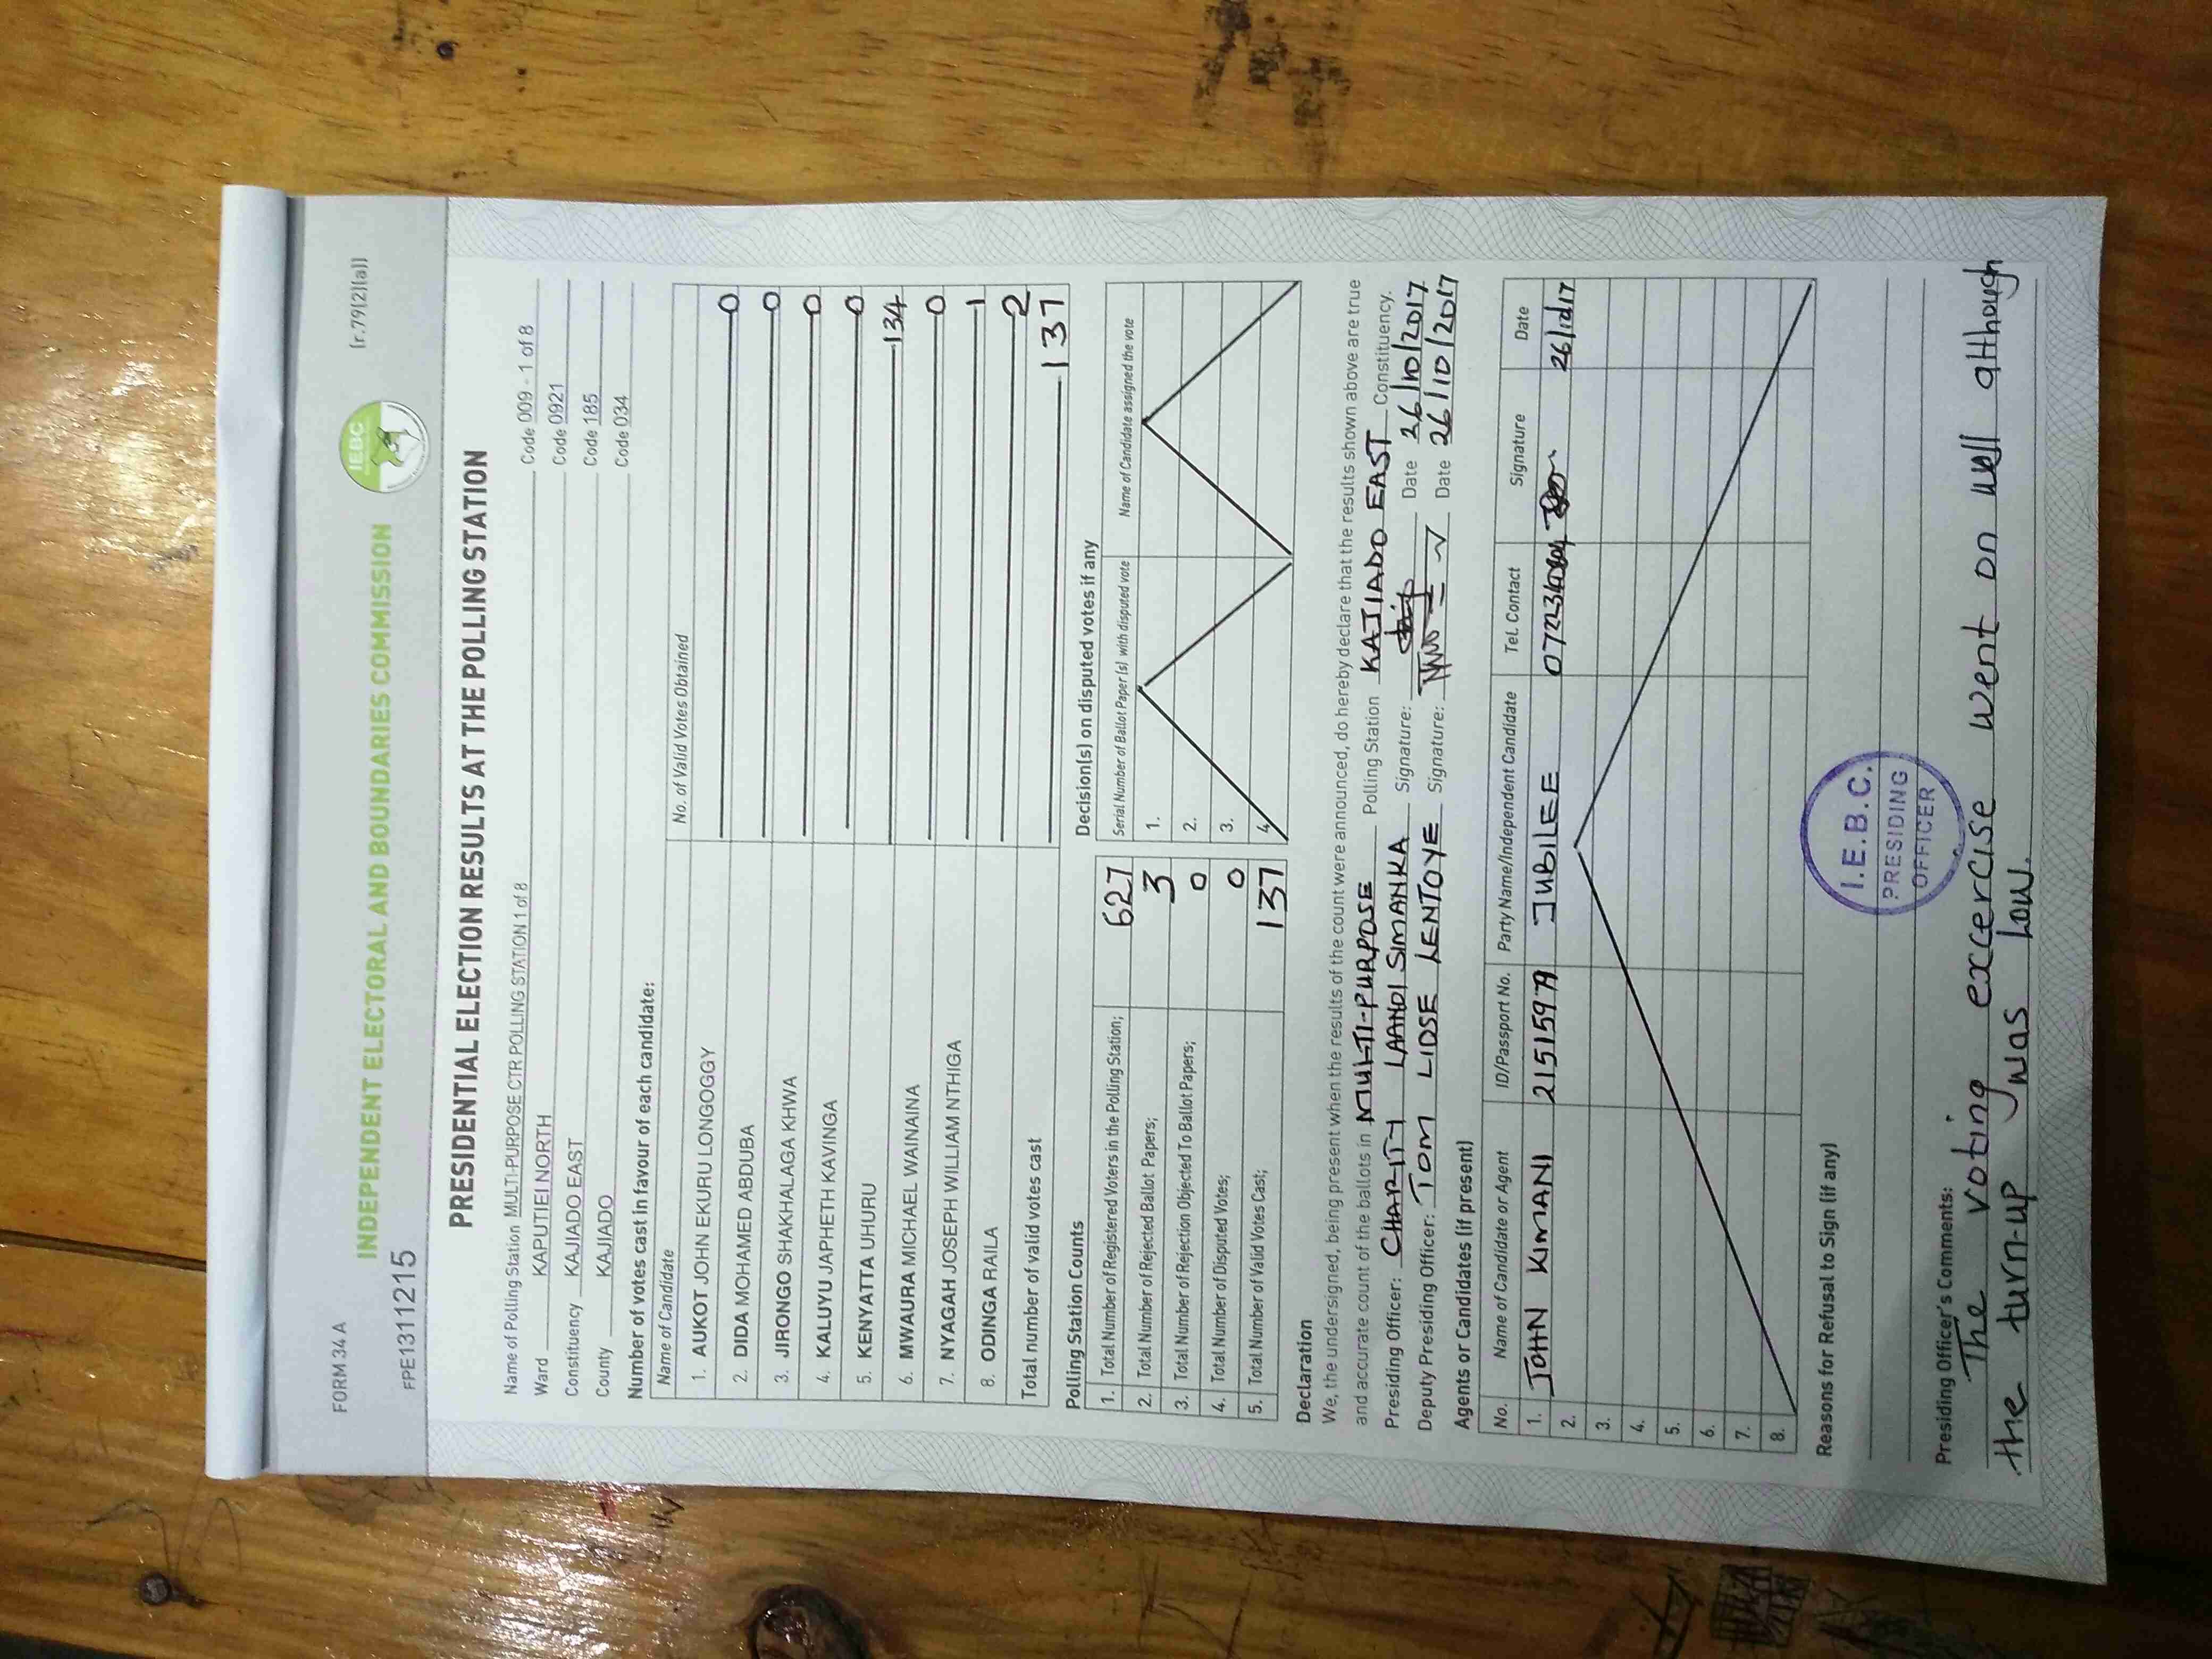 FORM 34 A
INDEPENDENT ELECTORAL AND BOUNDARIES COMMISSION IEBC [r.79(2)(a)]
FPE1311215
PRESIDENTIAL ELECTION RESULTS AT THE POLLING STATION
Name of Polling Station MULTI-PURPOSE CTR POLLING STATION 1 of 8 Code 009 - 1 of 8
Ward KAPUTIEI NORTH Code 0921
Constituency KAJIADO EAST Code 185
County KAJIADO Code 034
Number of votes cast in favour of each candidate:
Name of Candidate No. of Valid Votes Obtained
1. AUKOT JOHN EKURU LONGOGGY 0
2. DIDA MOHAMED ABDUBA 0
3. JIRONGO SHAKHALAGA KHWA 0
4. KALUYU JAPHETH KAVINGA 0
5. KENYATTA UHURU 134
6. MWAURA MICHAEL WAINAINA 0
7. NYAGAH JOSEPH WILLIAM NTHIGA 1
8. ODINGA RAILA 2
Total number of valid votes cast 137
Polling Station Counts
1. Total Number of Registered Voters in the Polling Station; 627
2. Total Number of Rejected Ballot Papers; 3
3. Total Number of Rejection Objected To Ballot Papers; 0
4. Total Number of Disputed Votes; 0
5. Total Number of Valid Votes Cast; 137
Decision(s) on disputed votes if any
Serial Number of Ballot Paper(s) with disputed vote Name of Candidate assigned the vote
1.
2.
3.
4.
Declaration
We, the undersigned, being present when the results of the count were announced, do hereby declare that the results shown above are true
and accurate count of the ballots in MULTI-PURPOSE Polling Station KAJIADO EAST Constituency.
Presiding Officer: CHARITY LAANOI SIMANKA Signature: Date 26/10/2017
Deputy Presiding Officer: TOM LIDSE LENTOYE Signature: Date 26/10/2017
Agents or Candidates (if present)
No. Name of Candidate or Agent ID/Passport No. Party Name/Independent Candidate Tel. Contact Signature Date
1. JOHN KIMANI JUBILEE
2.
3.
4.
5.
6.
7.
8.
Reasons for Refusal to Sign (if any)
I.E.B.C.
PRESIDING
OFFICER
Presiding Officer's Comments:
The voting excercise went on well although
the turn-up was low.